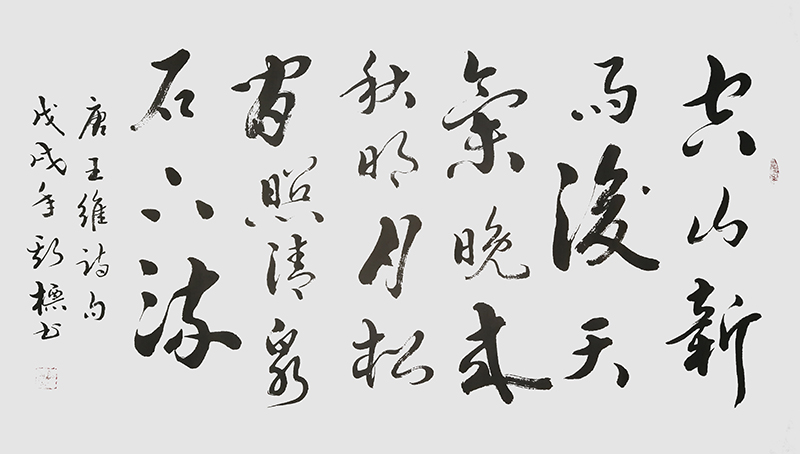 空山新
雨後天
氣晚來
秋明月松
間照清泉
石上流
唐王維詩句
戊戌年標書